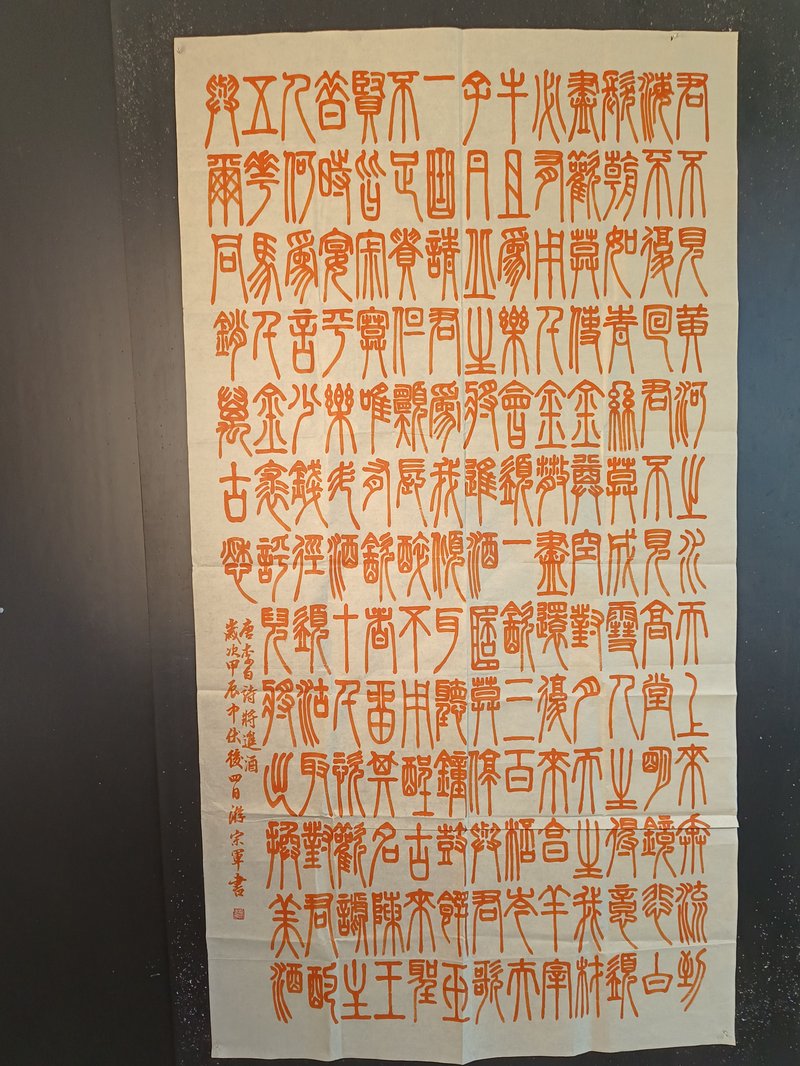 君不見黃河之水天上來奔流到
海不復回君不見高堂明鏡悲白
髮朝如青絲莫成雪人生得意須
盡歡莫使金尊空對月天生我材
必有用千金散盡還復來亯羊宰
牛且爲樂會須一飲三百桮岑夫
子丹丘生將進酒杯莫停與君歌
一曲請君爲我傾耳聽鐘鼓饌玉
不足貴但願長醉不用醒古來聖
賢皆寂寞唯有飲者留其名陳王
昔時宴平樂斗酒十千恣歡謔主
人何爲言少錢徑須沽取對君酌
五花馬千金裘呼兒將出換美酒
與爾同銷萬古愁
唐李白詩將進酒
歲次甲辰中伏後四日游宗軍書